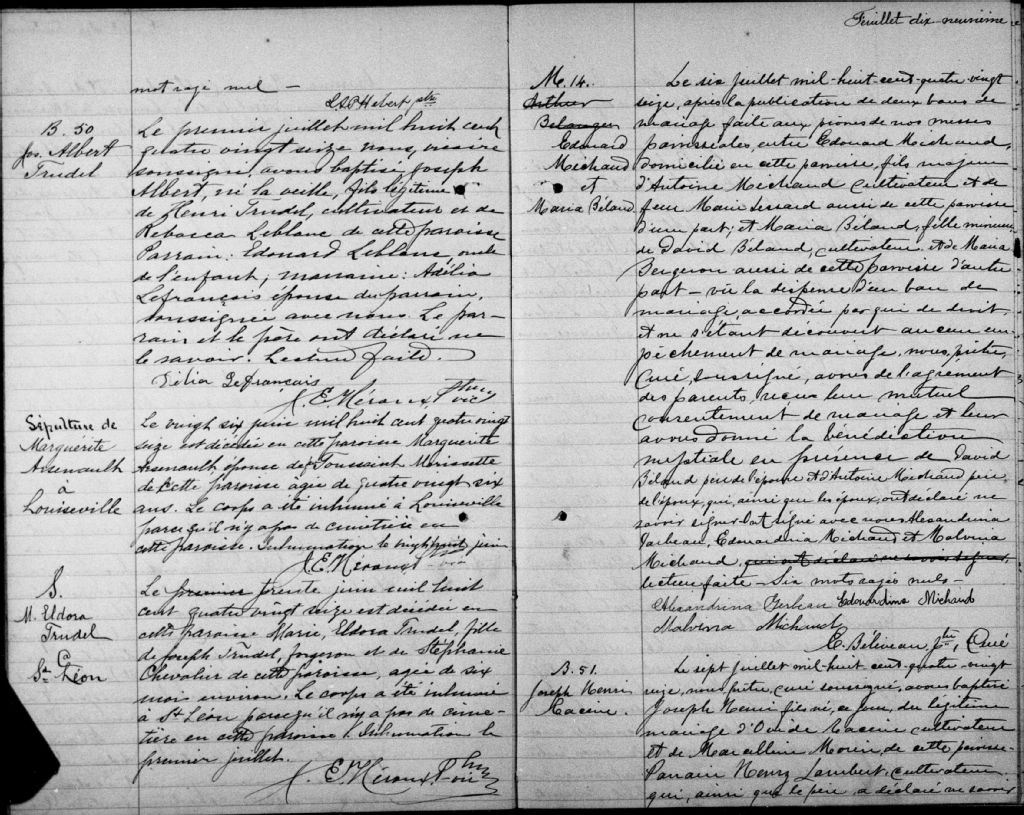 mot rayé nul —
Ptre
B. 50
Jos. Albert
Trudel
Le premier juillet mil huit cent
quatre vingt seize nous, vicaire
soussigné, avons baptisé Joseph
Albert, né la veille, fils légitime
de Henri Trudel, cultivateur et de
Rebecca Leblanc de cette paroisse
Parrain: Edouard Leblanc, oncle
de l'enfant; marraine: Adélia
Lefrançois épouse du parrain,
soussignée avec nous. Le par-
rain et le père ont déclaré ne
le savoir. Lecture faite.
Délia Lefrançois
J. E. Héroux Ptre vic
Sépulture de
Marguerite
Arsenault
à
Louiseville
Le vingh six juin mil huit cent quatre vingt
seize est décédée en cette paroisse Marguerite
Arsenault épouse de Toussaint Morissette
de cette paroisse agée de quatre vingt six
ans. Le corps a été inhumé à Louiseville
parcequ'il n'y a pas de cimetière en
cette paroisse. Inhumation le vingt huit juin
J. E. Héroux
S.
M. Eldora
Trudel
à
St Léon
Le premier trente juin mil huit
cent quatre vingt seize est décédée en
cette paroisse Marie, Eldora Trudel, fille
de Joseph Trudel, forgeron et de Stéphanie
Chevalier de cette paroisse, agée de six
mois environ. Le corps a été inhumé
à St Léon parcequ'il n'y a pas de cime-
tière en cette paroisse. Inhumation le
premier juillet.
J. E. Héroux Ptre vic
Feuillet dix neuvième
M. 14.
Arthur
Belanger
Edouard
Michaud
et
Maria Béland
Le six juillet mil-huit-cent-quatre-vingt
seize, après la publication de deux bans de
mariage faite aux prônes de nos messes
paroissiales, entre Edouard Michaud,
domicilié en cette paroisse, fils majeur
d'Antoine Michaud cultivateur et de
feue Marie Lessard aussi de cette paroisse
d'une part; et Maria Béland, fille mineure
de David Béland, cultivateur, et de Maria
Bergeron aussi de cette paroisse d'autre
part — vu la dispense d'un ban de
mariage accordée par qui de droit
et ne s'étant découvert aucun em-
pêchement de mariage, nous, prêtre,
Curé, soussigné, avons de l'agrément
des parents, reçu leur mutuel
consentement de mariage et leur
avons donné la bénédiction
nuptiale en présence de David
Béland père de l'épouse et d'Antoine Michaud père
de l'époux, qui, ainsi que les époux, ont déclaré ne
savoir signer. ont signé avec nous Alexandrina
Edouardina Michaud et Malvina
Michaud, qui ont déclaré ne savoir signer,
lecture faite — Six mots rayés nuls —
Alexandrina Gerbeau Edouardina Michaud
Malvina Michaud
E. Béliveau, Ptre, Curé
B. 51.
Joseph Henri
Racine.
Le sept juillet mil-huit-cent-quatre-vingt
seize, nous, prêtre, curé soussigné, avons baptisé
Joseph Henri fils né, ce jour, du légitime
mariage d'Ovide Racine cultivateur
et de Marcelline Morin, de cette paroisse
Parrain Henry Lambert, cultivateur
qui, ainsi que le père, a déclaré ne savoir